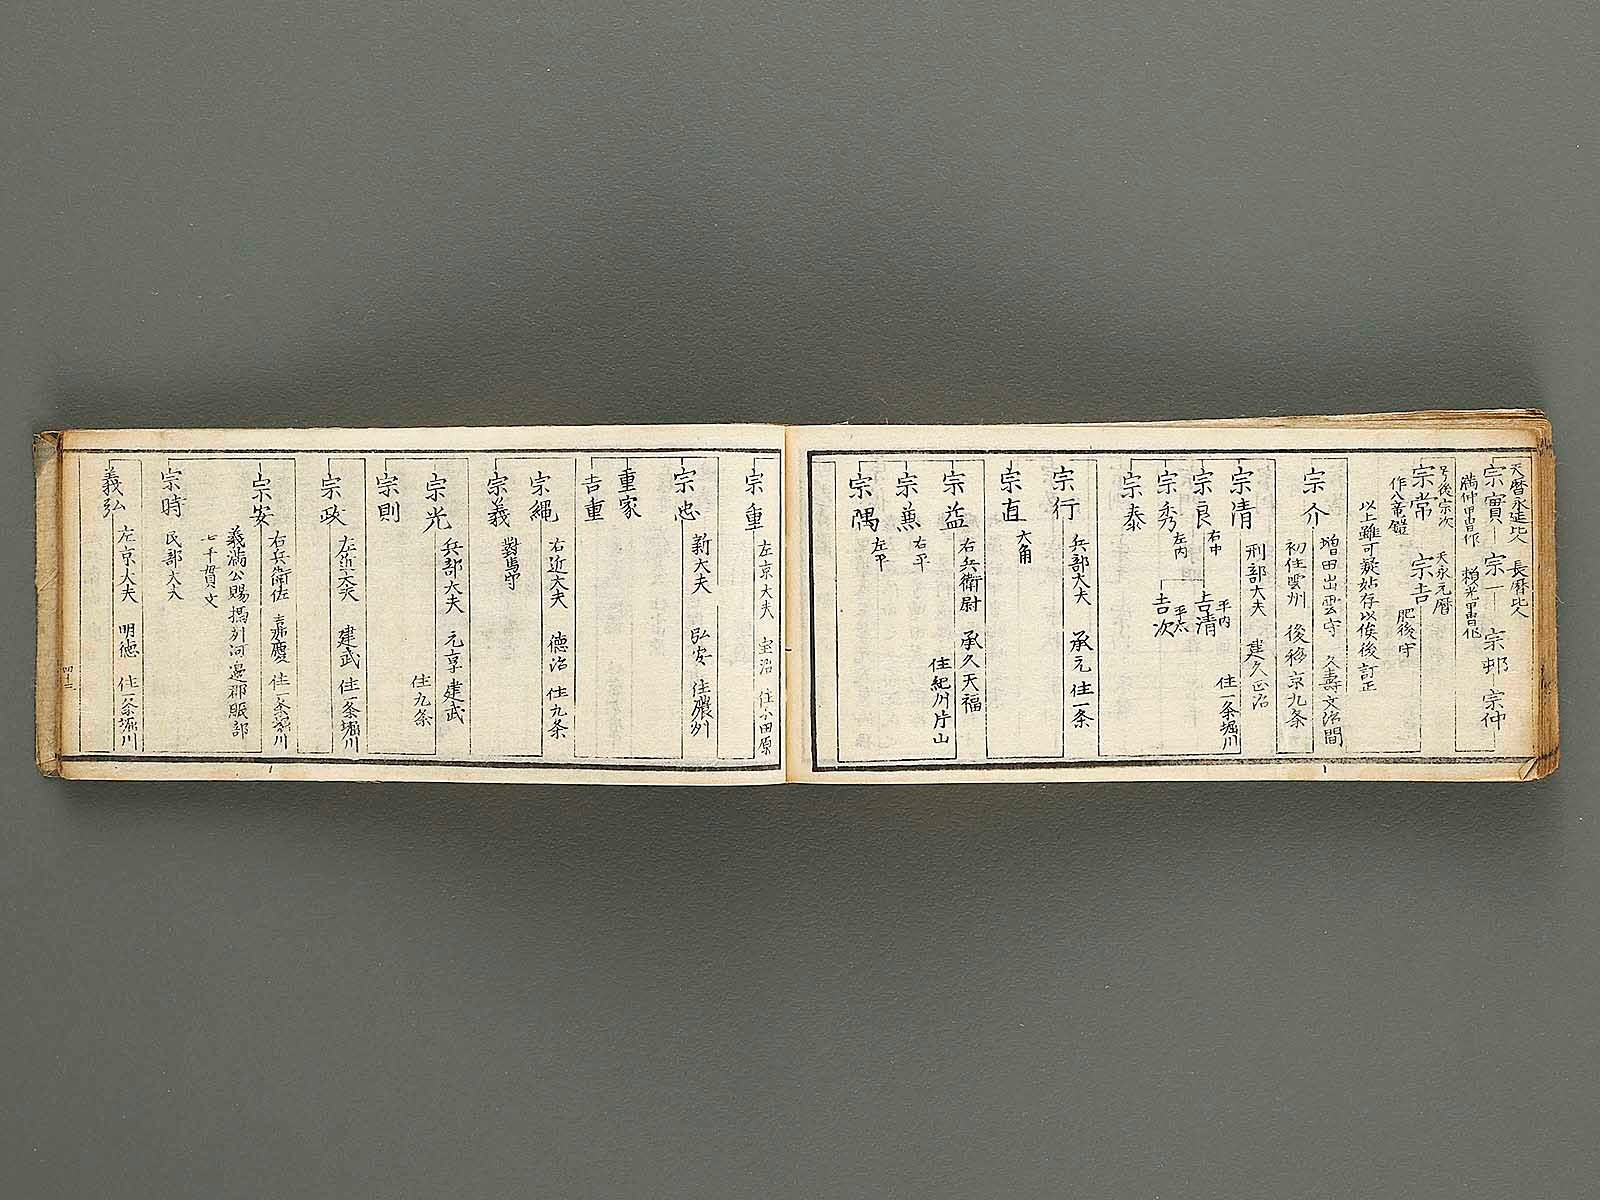 天暦永延比人 長暦比人
宗實 宗一 宗邨 宗仲
満仲甲冑作 頼光甲冑作
号後宗次 天永元暦
宗常 宗吉 肥後守
作八竜鎧
以上雖可疑姑存以俟後訂正
増田出雲守 久壽文治間
宗介
初住雲州 後移京九条
刑部大夫 建久正治
宗清
住一条堀川
右中
宗良
平内
吉清
左内
宗秀
平六
吉次
宗泰
兵部大夫 承元 住一条
宗行
大角
宗直
右兵衛尉 承久天福
宗益
住紀州片山
右平
宗兼
左平
宗隅
左京大夫 宝治 住小田原
宗重
新大夫 弘安 住濃州
宗忠
重家
吉重
右近大夫 徳治 住九条
宗縄
對馬守
宗義
兵部大夫 元享建武
宗光
住九条
宗則
左近大夫 建武 住一条堀川
宗政
右兵衛佐 嘉慶 住一条堀川
宗安
義満公賜攝州河邊郡賑部
七千貫文
民部大夫
宗時
左京大夫 明徳 住一条堀川
義弘
四十二